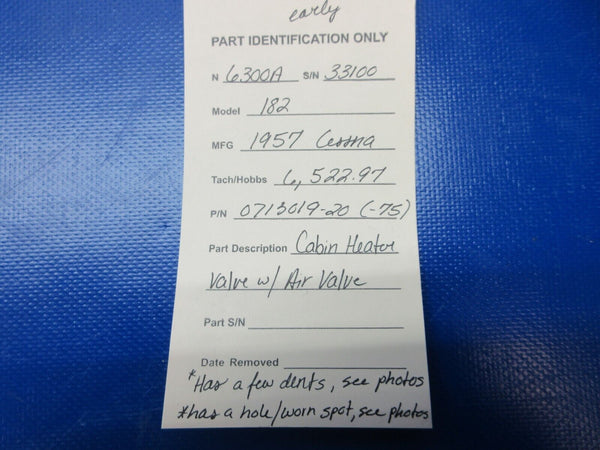 early
PART IDENTIFICATION ONLY
N 6300A S/N 33100
Model 182
MFG 1957 Cessna
Tach/Hobbs 6,522.97
P/N 0713019-20 (-75)
Part Description Cabin Heater
Valve w/ Air Valve
Part S/N
Date Removed
*Has a few dents, see photos
*has a hole/worn spot, see photos